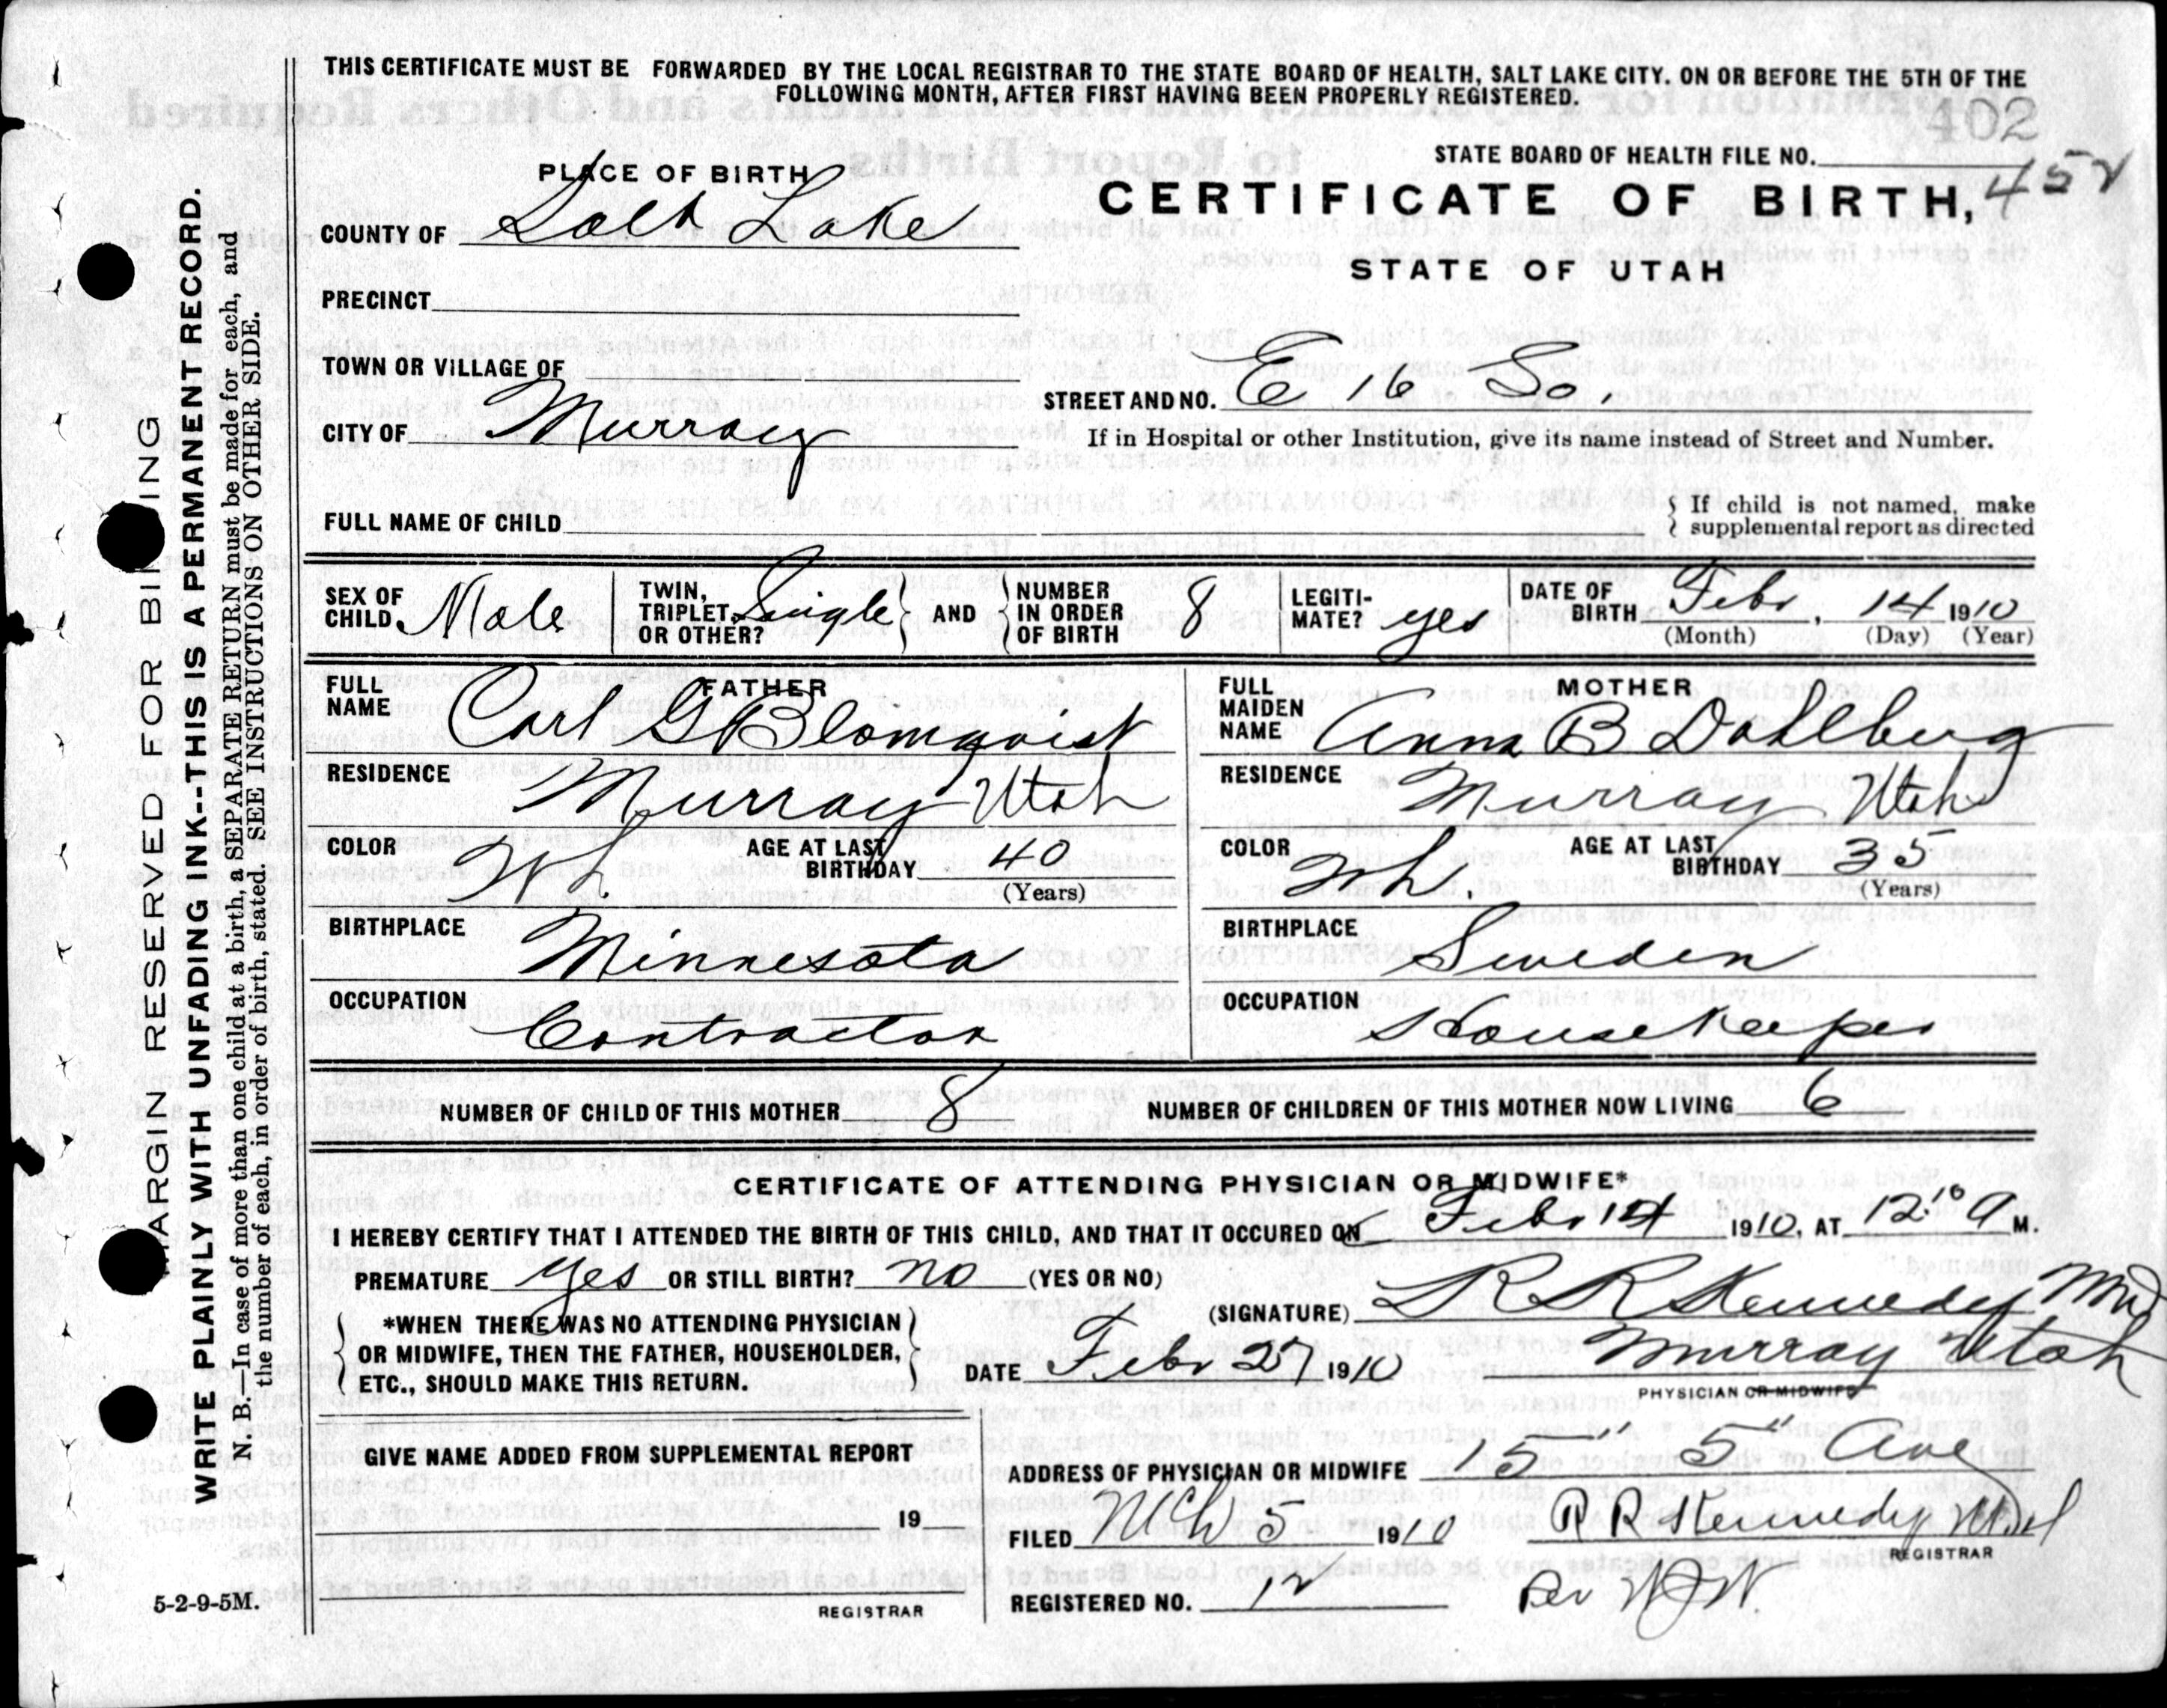 THIS CERTIFICATE MUST BE FORWARDED BY THE LOCAL REGISTRAR TO THE STATE BOARD OF HEALTH, SALT LAKE CITY. ON OR BEFORE THE 5TH OF THE
FOLLOWING MONTH, AFTER FIRST HAVING BEEN PROPERLY REGISTERED.
402
STATE BOARD OF HEALTH FILE NO.
452
PLACE OF BIRTH
CERTIFICATE OF BIRTH,
COUNTY OF Salt Lake
STATE OF UTAH
PRECINCT
TOWN OR VILLAGE OF
STREET AND NO. E 16 So.
CITY OF Murray
If in Hospital or other Institution, give its name instead of Street and Number.
FULL NAME OF CHILD
If child is not named, make
supplemental report as directed
SEX OF CHILD. Male
TWIN, TRIPLET, OR OTHER? Single AND NUMBER IN ORDER OF BIRTH 8
LEGITI-MATE? yes
DATE OF BIRTH Febr, 14 1910
(Month) (Day) (Year)
FATHER
FULL NAME Carl G Blomquist
RESIDENCE Murray Utah
COLOR Wh AGE AT LAST BIRTHDAY 40
(Years)
BIRTHPLACE Minnesota
OCCUPATION Contractor
MOTHER
FULL MAIDEN NAME Anna B Dahlberg
RESIDENCE Murray Utah
COLOR Wh. AGE AT LAST BIRTHDAY 35
(Years)
BIRTHPLACE Sweden
OCCUPATION Housekeeper
NUMBER OF CHILD OF THIS MOTHER 8 NUMBER OF CHILDREN OF THIS MOTHER NOW LIVING 6
CERTIFICATE OF ATTENDING PHYSICIAN OR MIDWIFE*
I HEREBY CERTIFY THAT I ATTENDED THE BIRTH OF THIS CHILD, AND THAT IT OCCURED ON Febr 14 1910, AT 12.10 A M.
PREMATURE yes OR STILL BIRTH? no (YES OR NO)
(SIGNATURE) R R Kennedy Md
*WHEN THERE WAS NO ATTENDING PHYSICIAN
OR MIDWIFE, THEN THE FATHER, HOUSEHOLDER,
ETC., SHOULD MAKE THIS RETURN.
DATE Febr 27 1910 Murray Utah
PHYSICIAN OR MIDWIFE
GIVE NAME ADDED FROM SUPPLEMENTAL REPORT
19
REGISTRAR
ADDRESS OF PHYSICIAN OR MIDWIFE 15" 5" Ave
FILED Mch 5 1910 R R Kennedy Md
REGISTRAR
REGISTERED NO. 12
5-2-9-5M.
MARGIN RESERVED FOR BINDING
WRITE PLAINLY WITH UNFADING INK--THIS IS A PERMANENT RECORD.
N. B.—In case of more than one child at a birth, a SEPARATE RETURN must be made for each, and
the number of each, in order of birth, stated. SEE INSTRUCTIONS ON OTHER SIDE.